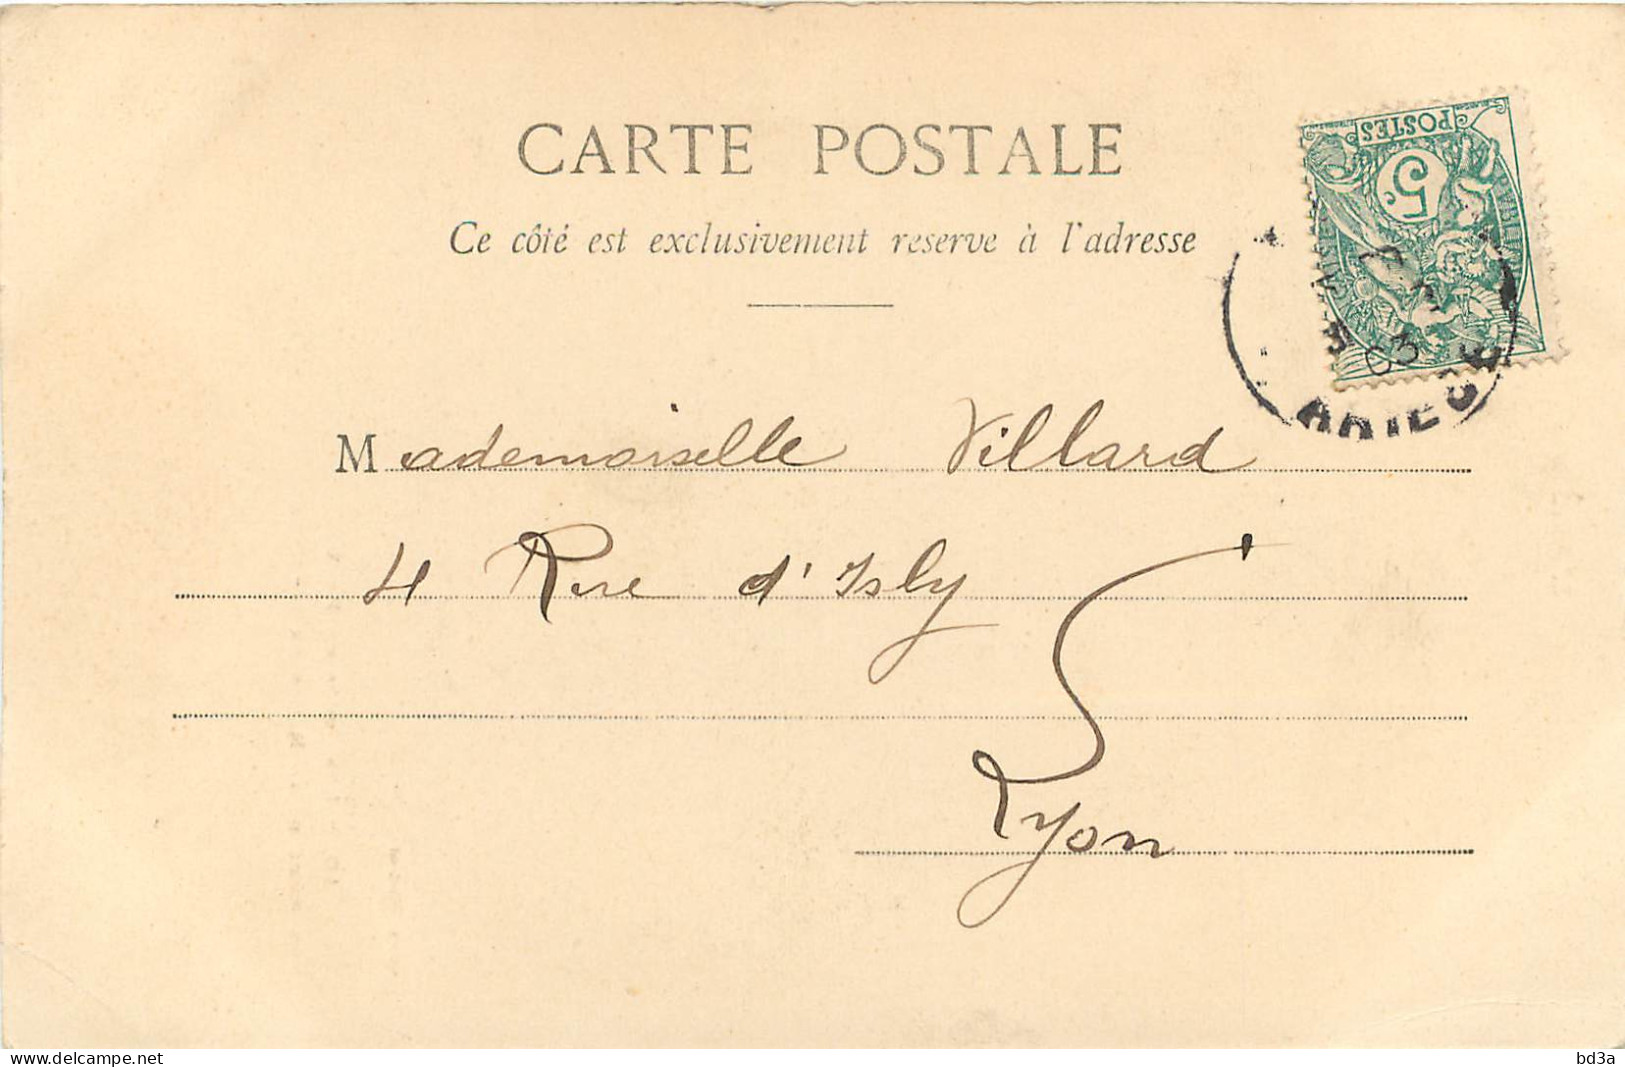 CARTE POSTALE
Ce côté est exclusivement reserve à l'adresse
POSTES
5c
03
ARIEGE
Mademoiselle Villard
4 Rue d'Isly
Lyon
www.delcampe.net
bd3a